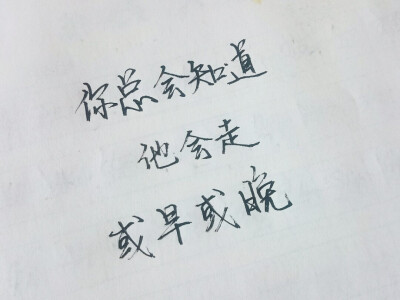 你总会知道
他会走
或早或晚